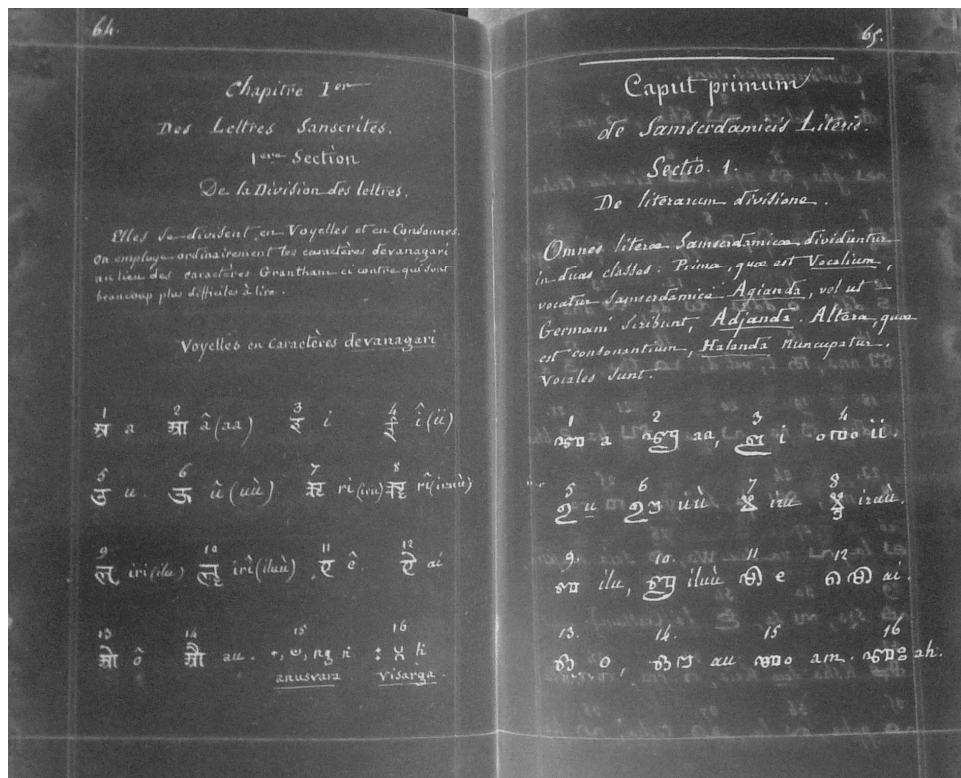 64.
Chapitre 1er
Des Lettres Sanscrites.
1ere Section
De la Division des lettres.
Elles se divisent en Voyelles et en Consonnes.
on employe ordinairement les caractères devanagari
au lieu des caractères Grantham ci contre qui sont
beaucoup plus difficiles à lire.
Voyelles en caractères devanagari
1 2 3 4
अ a आ â (aa) इ i ई î (ii)
5 6 7 8
उ u. ऊ û (uù) ऋ ri (iru) ॠ rî (iruù)
9 10 11 12
ऌ iri (ilu) ॡ irî (iluù) ए ê. ऐ ai
13 14 15 16
ओ ô औ au. ng : h
anusvara visarga.
65.
Caput primum
de Samscrdamicis Literis.
Sectio. 1.
De literarum divisione.
Omnes literæ Samscrdamicæ dividuntur
in duas classes: Prima, quæ est Vocalium,
vocatur Samscrdamicè Agianda, vel ut
Germani scribunt, Adjanda. Altera, quæ
est consonantium, Halanda nuncupatur.
Vocales sunt.
1 2 3 4
𑌅 a 𑌆 aa, 𑌇 i 𑌈 ii.
5 6 7 8
𑌉 u 𑌊 uù 𑌋 iru 𑍠 iruù.
9. 10. 11 12
𑌌 ilu, 𑍡 iluù 𑌏 e 𑌐 ai.
13. 14. 15 16
𑌓 o, 𑌔 au 𑌅𑌂 am. 𑌅𑌃 ah.